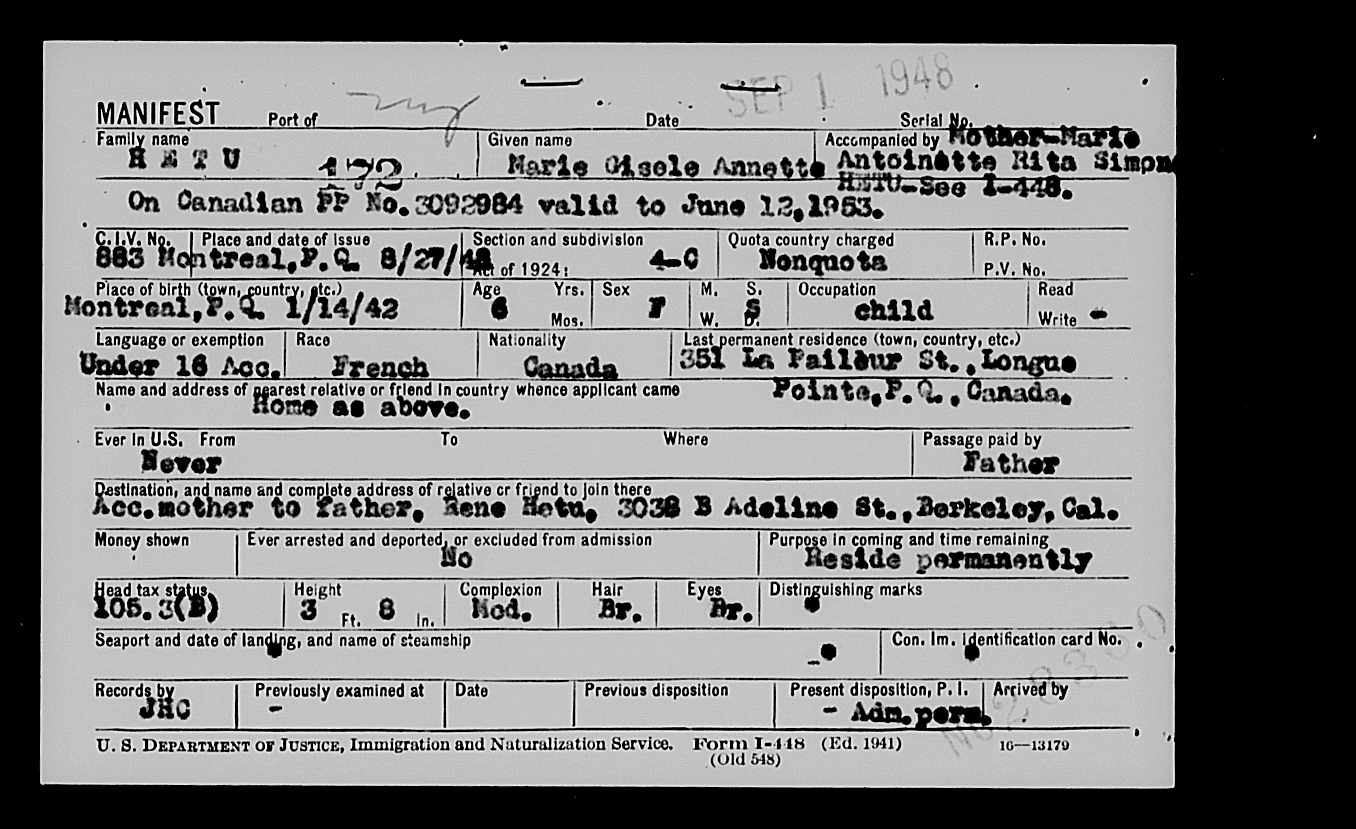 SEP 1 1948
MANIFEST Port of Date Serial No.
Family name Given name Accompanied by Mother-Marie
HETU 172 Marie Gisele Annette Antoinette Rita Simone
HETU-See I-448.
On Canadian PP No.3092984 valid to June 12,1953.
C.I.V. No. Place and date of issue Section and subdivision Quota country charged R.P. No.
883 Montreal,P.Q. 8/27/48 Act of 1924: 4-C Nonquota P.V. No.
Place of birth (town, country, etc.) Age Yrs. Sex M. S. Occupation Read
Montreal,P.Q. 1/14/42 6 Mos. F W. S D. child Write -
Language or exemption Race Nationality Last permanent residence (town, country, etc.)
Under 16 Acc. French Canada 351 La Faileur St.,Longue
Name and address of nearest relative or friend in country whence applicant came Pointe,P.Q.,Canada.
Home as above.
Ever in U.S. From To Where Passage paid by
Never Father
Destination, and name and complete address of relative or friend to join there
Acc.mother to father, Rene Hetu, 3038 B Adeline St.,Berkeley, Cal.
Money shown Ever arrested and deported, or excluded from admission Purpose in coming and time remaining
No Reside permanently
Head tax status Height Complexion Hair Eyes Distinguishing marks
105.3(B) 3 Ft. 8 In. Med. Br. Br.
Seaport and date of landing, and name of steamship Con. Im. Identification card No.
Records by Previously examined at Date Previous disposition Present disposition, P. I. Arrived by
JHC - - Adm.perm.
U. S. DEPARTMENT OF JUSTICE, Immigration and Naturalization Service. Form I-448 (Ed. 1941) 16—13179
(Old 548)